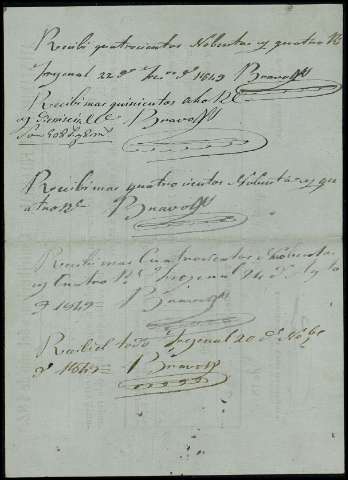 Recibi quatrocientos Nobenta y quatro R
Frejenal 22 de 1849 Bravo
Recibi mas quinientos ocho R
Bravo
Recibi mas quatrocientos Nobenta y qu
atro Rs Bravo
Recibi mas Cuatrocientos Nobenta
y Cuatro Rs Frejenal 24 de
de 1849 = Bravo
Recibi el todo Frejenal 20 de
de 1849 = Bravo